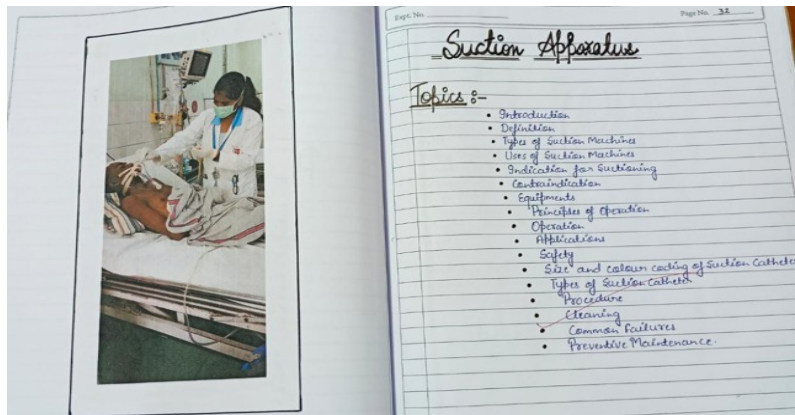 Expt. No.
Page No. 32
Suction Apparatus
Topics :-
• Introduction
• Definition
• Types of Suction Machines
• Uses of Suction Machines
• Indication for Suctioning
• Contraindication
• Equipments
• Principles of Operation
• Operation
• Applications
• Safety
• Size and colour coding of Suction Catheter
• Types of Suction Catheter
• Procedure
• Cleaning
• Common Failures
• Preventive Maintenance.